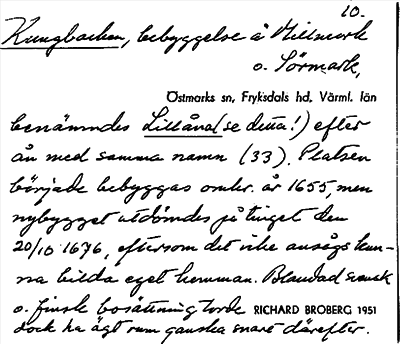 10.
Kungbacken, bebyggelse å Millmark
o. Sörmark,
Östmarks sn, Fryksdals hd, Värml. län
benämndes Lillåna (se detta!) efter
ån med samma namn (33). Platsen
började bebyggas omkr. år 1655, men
nybygget utdömdes på tinget den
20/10 1676, eftersom det icke ansågs kun-
na bilda eget hemman. Blandad svensk
o. finsk bosättning torde RICHARD BROBERG 1951
dock ha ägt rum ganska snart därefter.